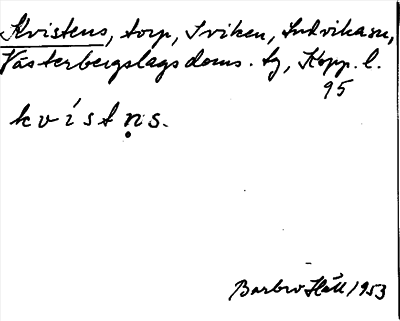 Kvistens, torp, Sviken, Ludvika sn,
Västerbergslags doms. tg, Kopp. l.
95
kvístṇs.
Barbro Häll 1953